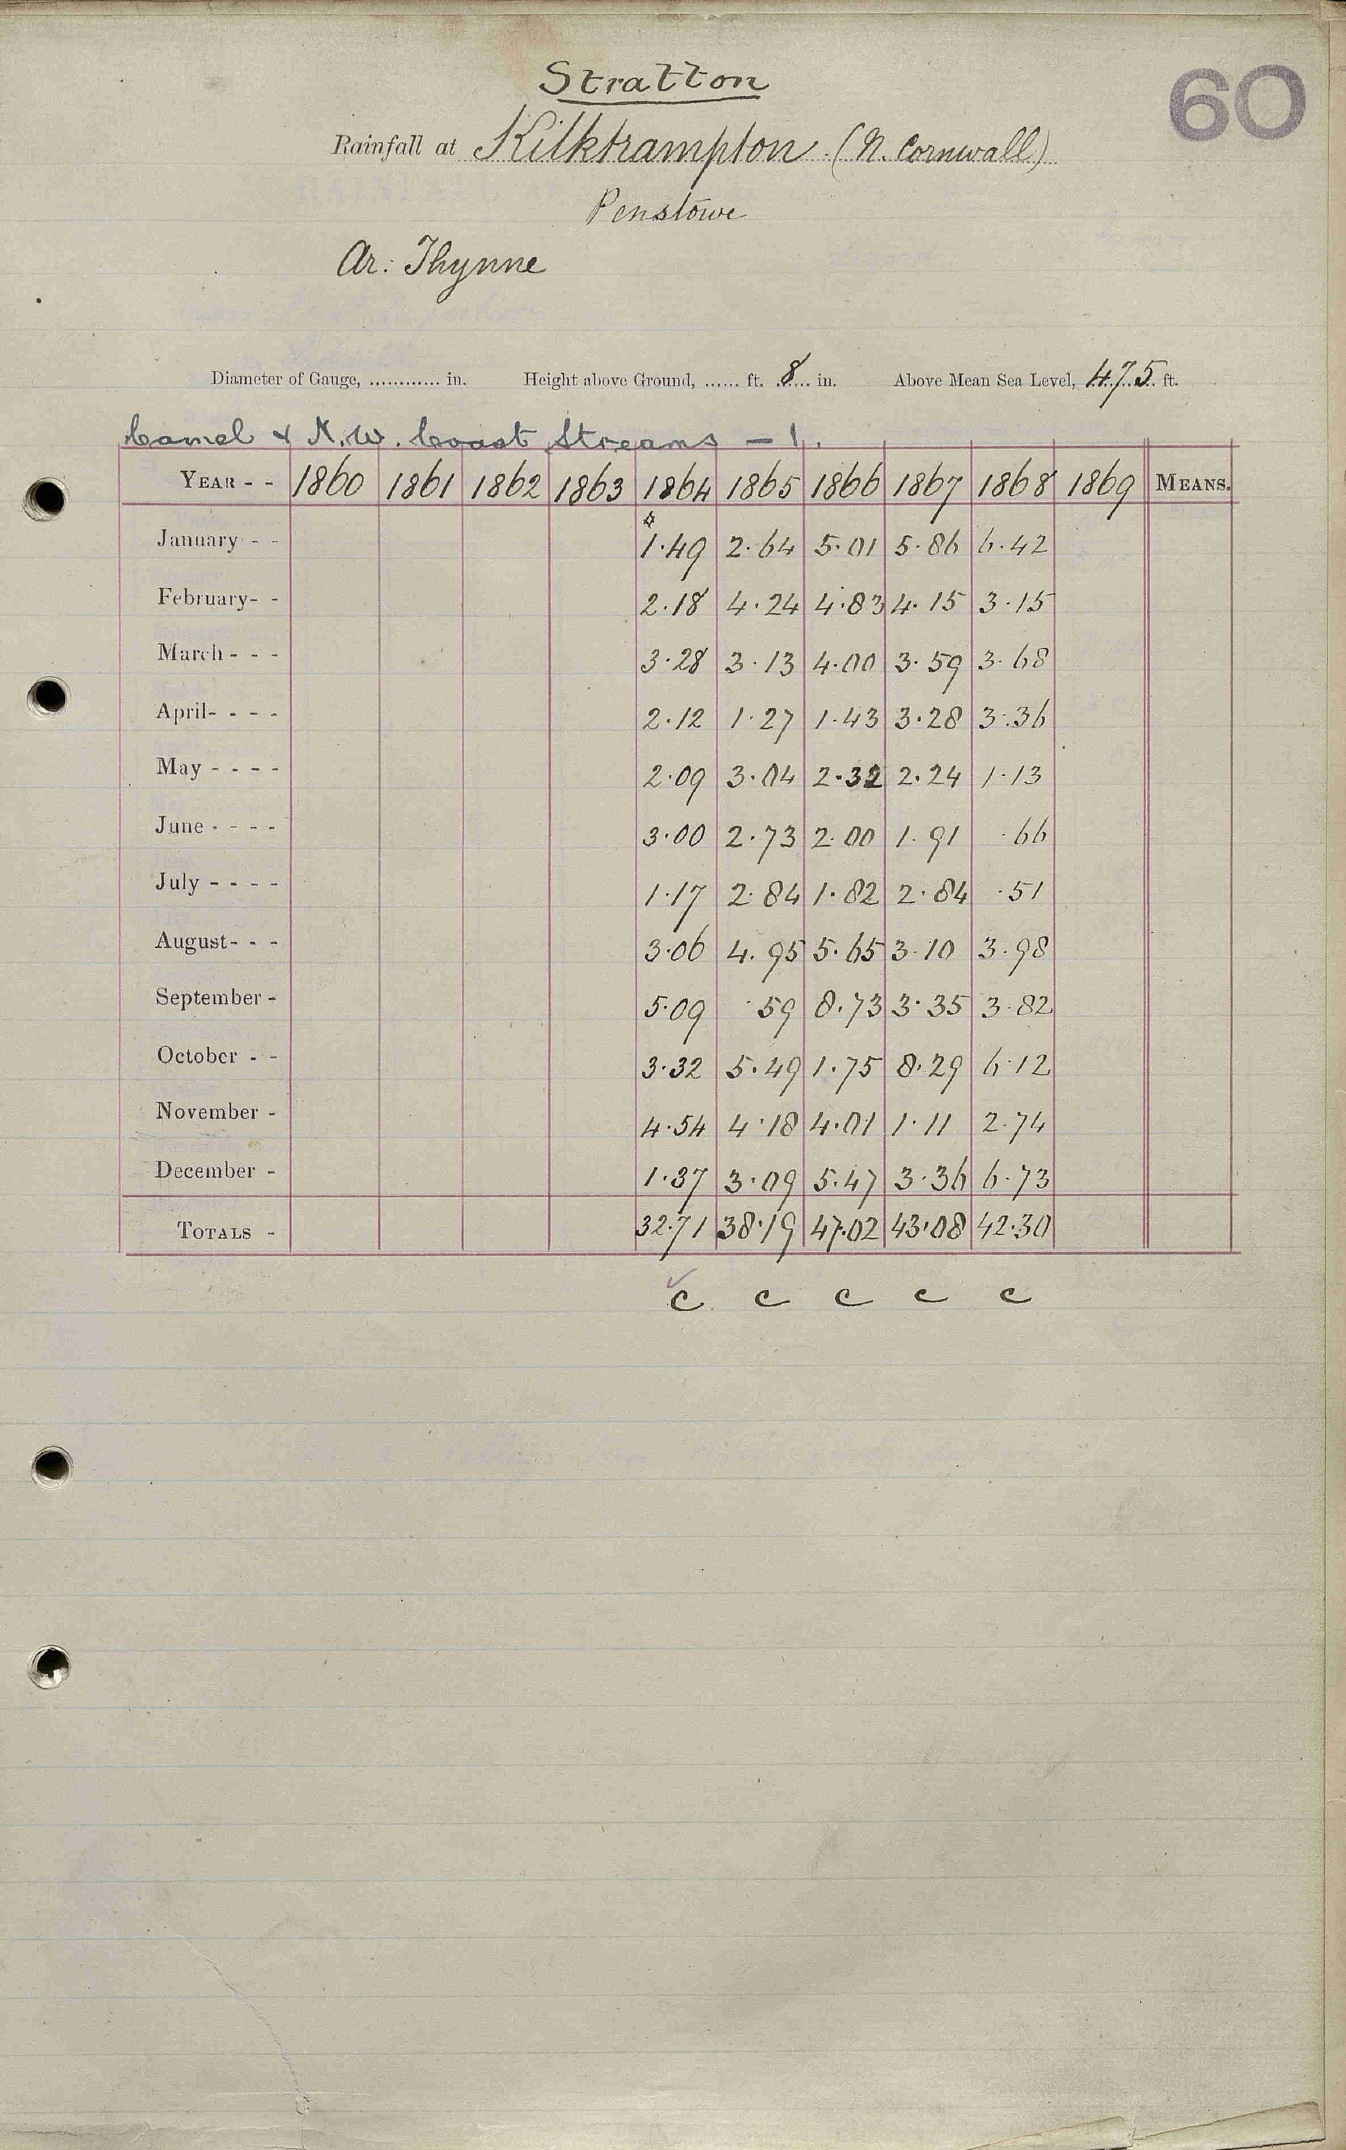 Stratton
60
Rainfall at Kilkhampton (N. Cornwall)
Penstowe
Ar: Thynne
Diameter of Gauge, ............ in. Height above Ground, ...... ft. 8 in. Above Mean Sea Level, 475 ft.
Camel & N.W. Coast Streams - 1.
YEAR - - 1860 1861 1862 1863 1864 1865 1866 1867 1868 1869 MEANS.
January - - 1.49 2.64 5.01 5.86 6.42
February - - 2.18 4.24 4.83 4.15 3.15
March - - - 3.28 3.13 4.00 3.59 3.68
April - - - - 2.12 1.27 1.43 3.28 3.36
May - - - - 2.09 3.04 2.32 2.24 1.13
June - - - - 3.00 2.73 2.00 1.91 .66
July - - - - 1.17 2.84 1.82 2.84 .51
August - - - 3.06 4.95 5.65 3.10 3.98
September - 5.09 .59 8.73 3.35 3.82
October - - 3.32 5.49 1.75 8.29 6.12
November - 4.54 4.18 4.01 1.11 2.74
December - 1.37 3.09 5.47 3.36 6.73
TOTALS - 32.71 38.19 47.02 43.08 42.30
c c c c c